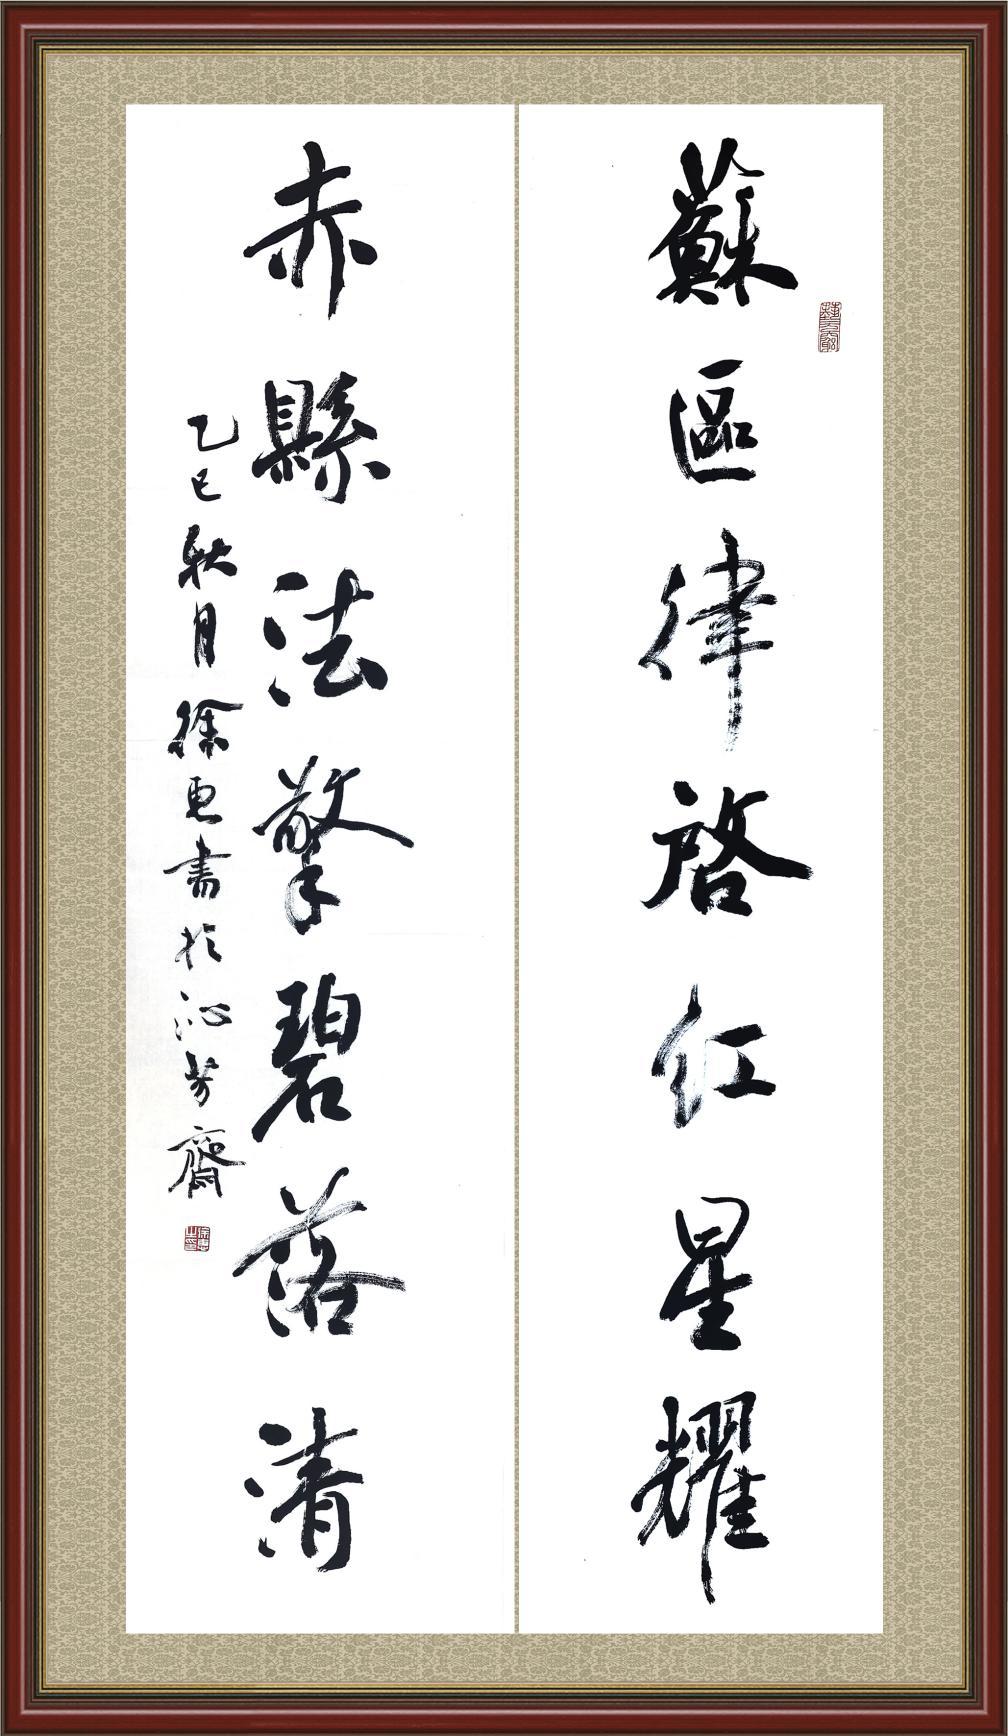 蘇區律啓紅星耀
赤縣法擎碧落清
乙巳秋月徐更書於沁芳齋